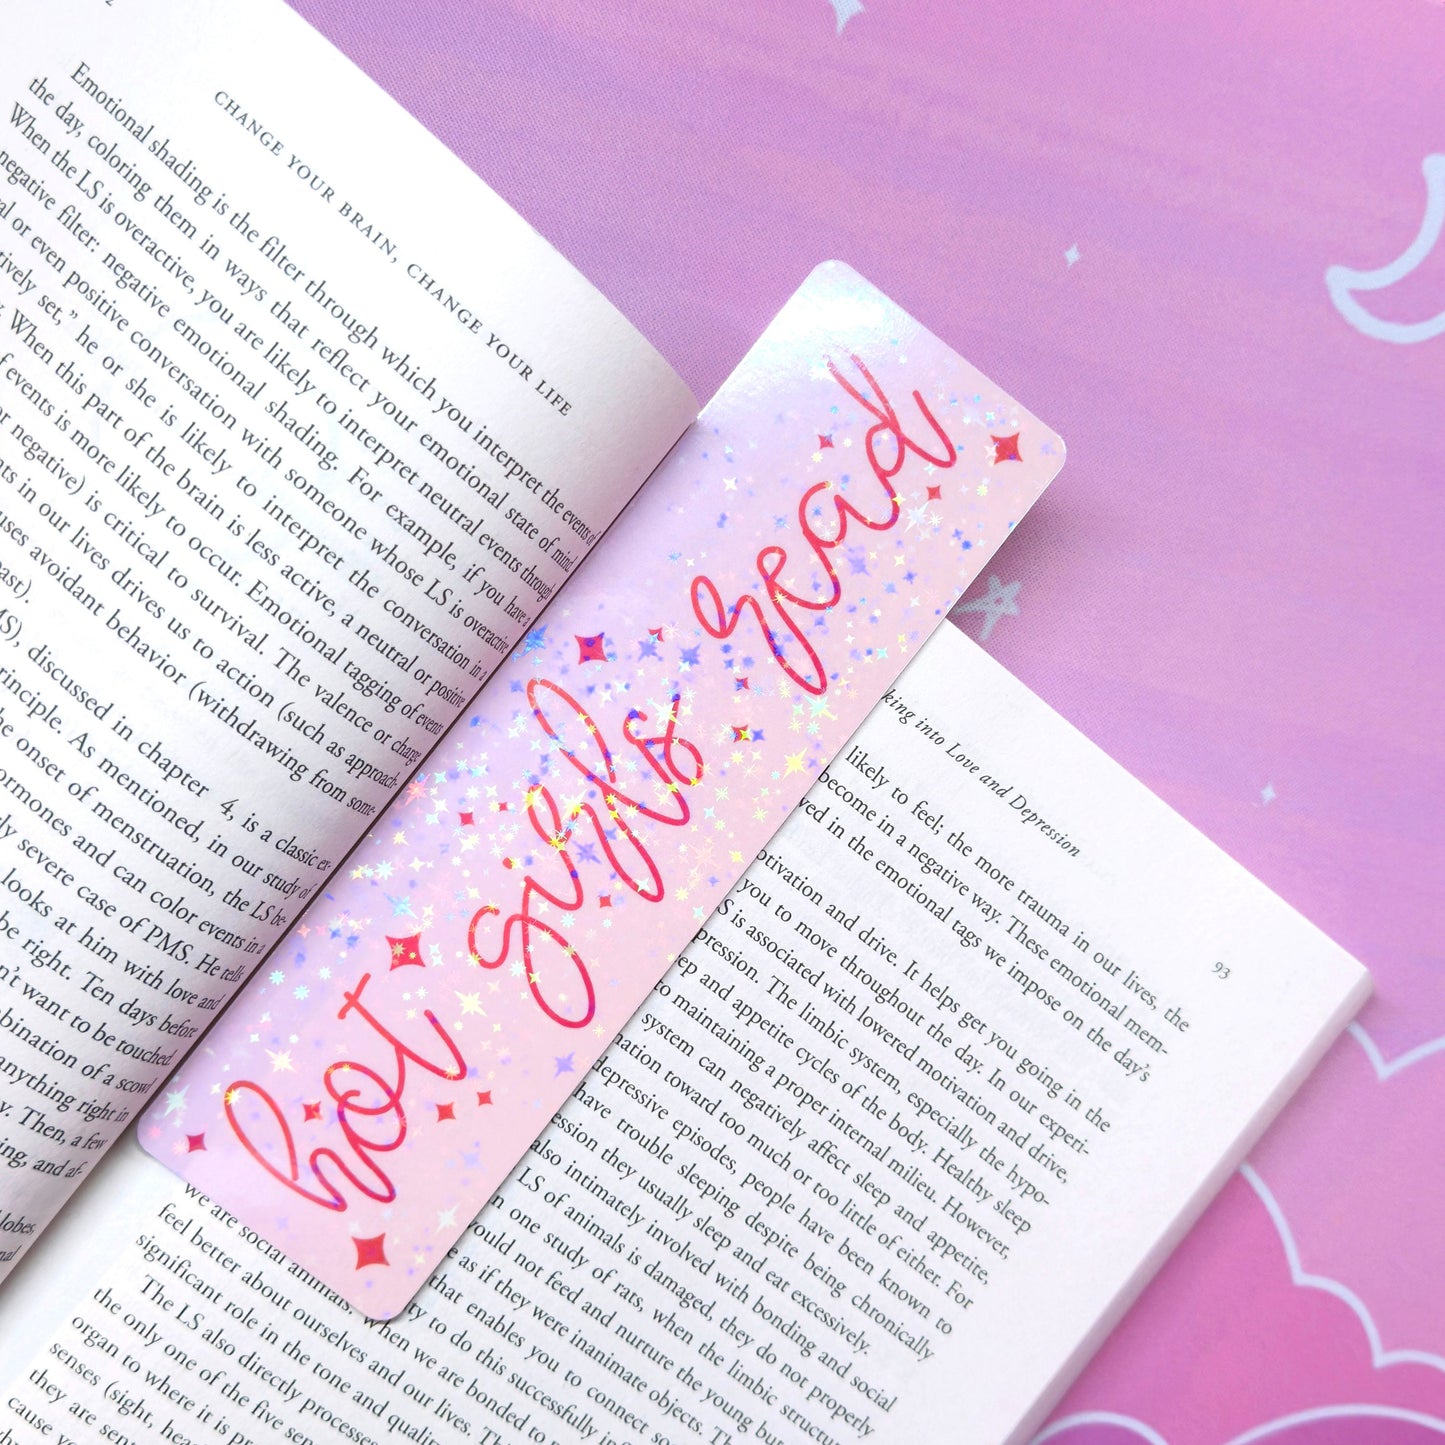 2
CHANGE YOUR BRAIN, CHANGE YOUR LIFE
Emotional shading is the filter through which you interpret the events of
the day, coloring them in ways that reflect your emotional state of mind.
When the LS is overactive, you are likely to interpret neutral events through
negative filter: negative emotional shading. For example, if you have a
or even positive conversation with someone whose LS is overactive
set," he or she is likely to interpret the conversation in a
When this part of the brain is less active, a neutral or positive
events is more likely to occur. Emotional tagging of events
or negative) is critical to survival. The valence or charge
in our lives drives us to action (such as approach-
avoidant behavior (withdrawing from some-
past).
discussed in chapter 4, is a classic ex-
principle. As mentioned, in our study of
the onset of menstruation, the LS be-
hormones and can color events in a
severe case of PMS. He tells
looks at him with love and
be right. Ten days before
want to be touched
of a scowl
anything right in
Then, a few
and af-
hot girls read
into Love and Depression
93
likely to feel; the more trauma in our lives, the
become in a negative way. These emotional mem-
in the emotional tags we impose on the day's
and drive. It helps get you going in the
you to move throughout the day. In our experi-
is associated with lowered motivation and drive,
The limbic system, especially the hypo-
and appetite cycles of the body. Healthy sleep
to maintaining a proper internal milieu. However,
system can negatively affect sleep and appetite,
toward too much or too little of either. For
depressive episodes, people have been known to
have trouble sleeping despite being chronically
they usually sleep and eat excessively.
also intimately involved with bonding and social
LS of animals is damaged, they do not properly
In one study of rats, when the limbic structures
would not feed and nurture the young but
as if they were inanimate objects. The
that enables you to connect
to do this successfully in
we are social animals. When we are bonded to
feel better about ourselves and our lives. This
significant role in the tone and quality
The LS also directly processes
the only one of the five
organ to where it is
senses (sight,
they are
cause